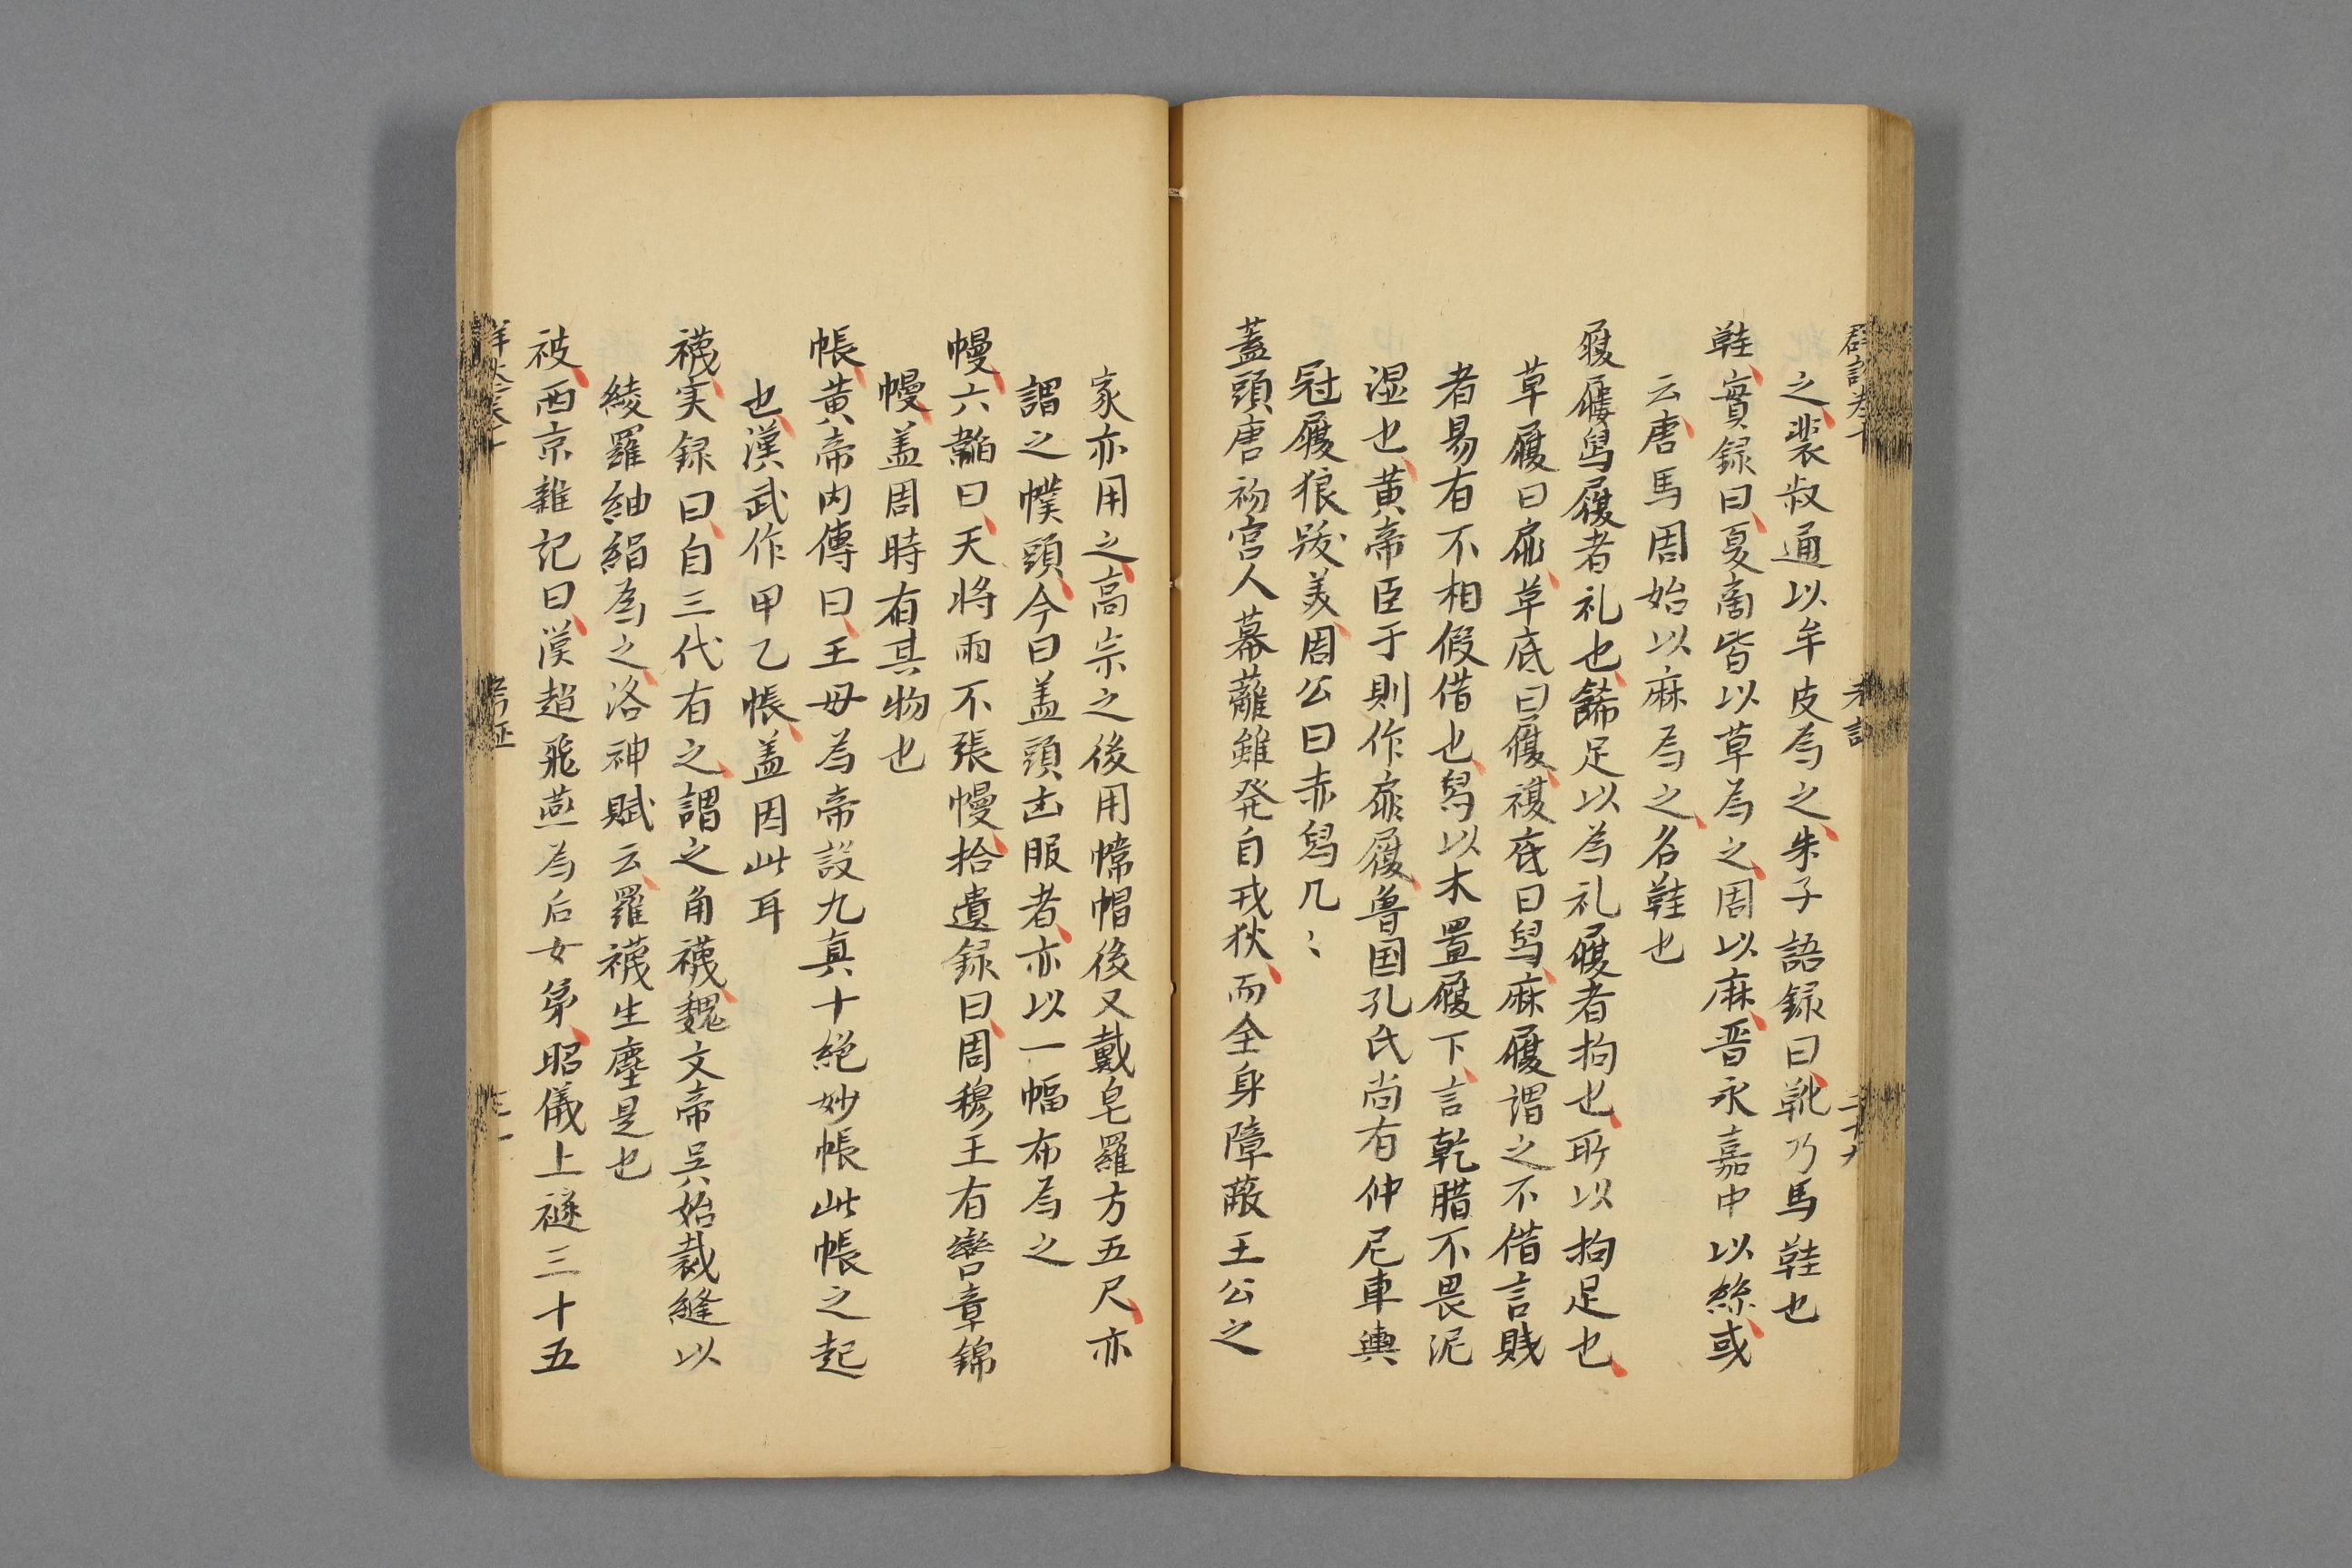 之裴叔通以牟皮為之朱子語録曰靴乃馬鞋也
鞋實録曰夏商皆以草為之周以麻晋永嘉中以絲或
云唐馬周始以麻為之名鞋也
履屨舄履者礼也餙足以為礼履者拘也所以拘足也
草履曰扉草底曰履複底曰舄麻履謂之不借言賤
者易有不相假借也舄以木置履下言乾腊不畏泥
湿也黄帝臣于則作扉履魯国孔氏尚有仲尼車輿
冠履狼跋美周公曰赤舄几〻
蓋頭唐初宮人幕蘺雖発自戎狄而全身障蔽王公之
家亦用之高宗之後用幃帽後又戴皂羅方五尺亦
謂之幞頭今曰盖頭凶服者亦以一幅布為之
幔六韜曰天将雨不張幔拾遺録曰周穆王有鸞章錦
幔盖周時有其物也
帳黄帝内傳曰王母為帝設九真十絶妙帳此帳之起
也漢武作甲乙帳盖因此耳
襪実録曰自三代有之謂之角襪魏文帝吴始裁縫以
綾羅紬絹為之洛神賦云羅襪生塵是也
被西京雑記曰漢趙飛燕為后女弟昭儀上襚三十五